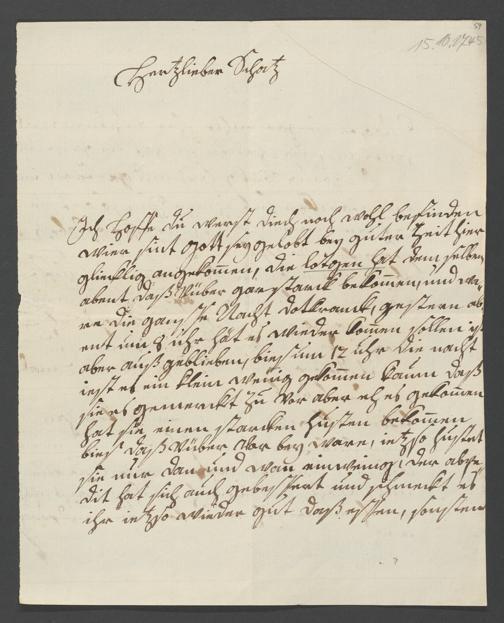 59
15.10.1745
Hertzlieber Schatz
Ich hoffe du werst dich noch wohl befinden
wier sint gott sey gelobt bey guter Zeit hier
glücklig angekommen, die lotgen hat den selben
abent daß Füber gar starck bekommen, und wa
re die gantze Nacht dotkranck, gestern ab
ent um 8 uhr hät es wieder komen sollen ist
aber auß geblieben, bies um 12 uhr die nacht
ist es ein klein wenig gekommen kaum daß
sie es gemerckt zu vor aber eh es gekommen
hat sie einen starcken husten bekommen
bies daß Füber vor bey ware, ietzo hustet
sie nur dan und wan ein wenig, der abpe
dit hat sich auch gebessert und schmeckt es
ihr ietzo wieder gut daß essen, sonsten